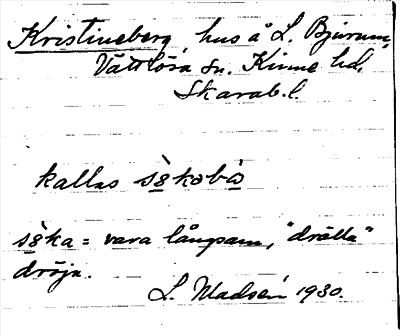 Kristineberg, hus å L. Bjurum,
Vättlösa sn. Kinne hd.
Skarab. l.
kallas sökabo
söka = vara långsam, "drälla"
dröja.
L. Madsén 1930.